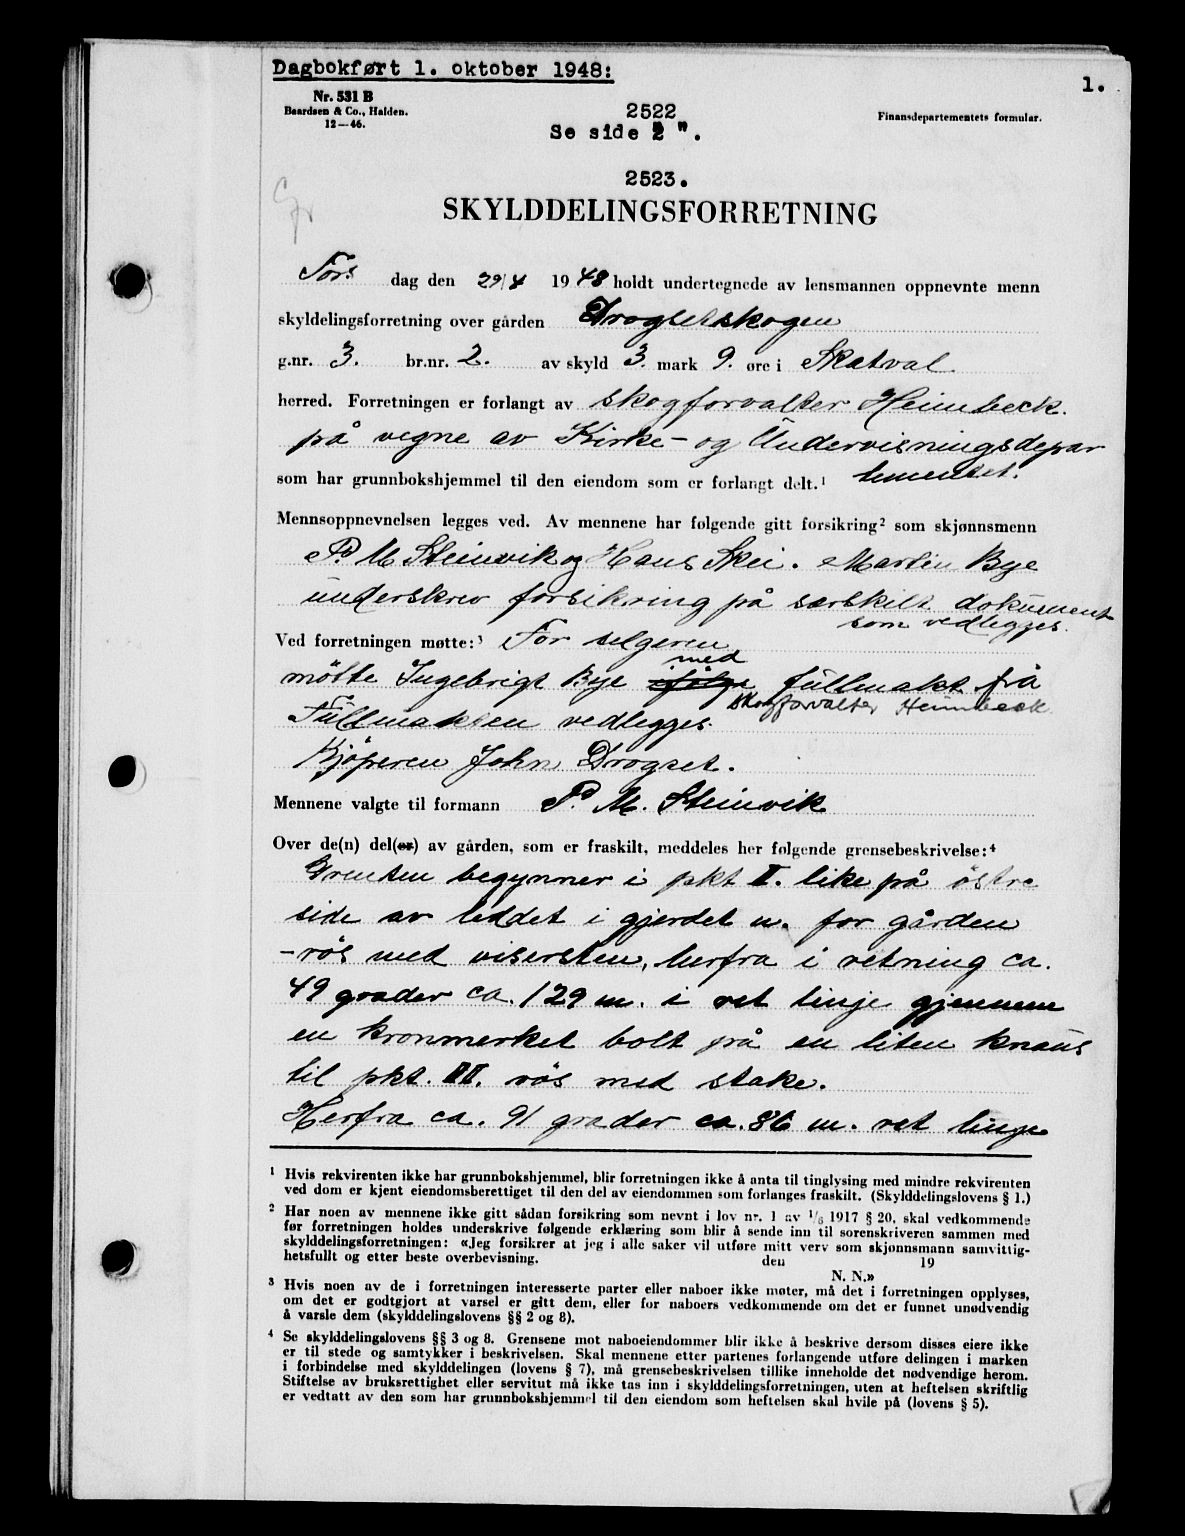 Dagbokført 1. oktober 1948:
1.
Nr. 531 B
Baardsen & Co., Halden.
12—46.
2522
Se side 2 ".
Finansdepartementets formular.
2523.
SKYLDDELINGSFORRETNING
Tors dag den 29/4 1948 holdt undertegnede av lensmannen oppnevnte menn
skyldelingsforretning over gården Drogsetskogen
g.nr. 3. br.nr. 2. av skyld 3. mark 9. øre i Skatval
herred. Forretningen er forlangt av skogforvalter Heimbeck.
på vegne av Kirke- og Undervisningsdepar
som har grunnbokshjemmel til den eiendom som er forlangt delt.¹ tementet.
Mennsoppnevnelsen legges ved. Av mennene har følgende gitt forsikring² som skjønnsmenn
P. M Steinvik og Hans Skei. Martin Bye
underskrev forsikring på særskilt dokument
som vedlegges.
Ved forretningen møtte:³ For selgeren
med
møtte Ingebrigt Bye ifølge fullmakt frå
skogforvalter Heimbeck
Fullmakten vedlegges.
Kjöperen John Drogset.
Mennene valgte til formann P. M. Steinvik
Over de(n) del(er) av gården, som er fraskilt, meddeles her følgende grensebeskrivelse:⁴
Grensen begynner i pkt II. like på östre
side av leddet i gjerdet n. for gården
-rös med visersten, herfra i retning ca.
49 grader ca. 129 m. i ret linje gjennem
en kronmerket bolt på en liten knaus
til pkt. III. rös med stake.
Herfra ca. 91 grader ca. 86 m. ret linje
¹ Hvis rekvirenten ikke har grunnbokshjemmel, blir forretningen ikke å anta til tinglysing med mindre rekvirenten
ved dom er kjent eiendomsberettiget til den del av eiendommen som forlanges fraskilt. (Skylddelingslovens § 1.)
² Har noen av mennene ikke gitt sådan forsikring som nevnt i lov nr. 1 av ¹/₆ 1917 § 20, skal vedkommende
før forretningen holdes underskrive følgende erklæring som blir å sende inn til sorenskriveren sammen med
skylddelingsforretningen: «Jeg forsikrer at jeg i alle saker vil utføre mitt verv som skjønnsmann samvittig-
hetsfullt og etter beste overbevisning. den 19
N. N.»
³ Hvis noen av de i forretningen interesserte parter eller naboer ikke møter, må det i forretningen opplyses,
om det er godtgjort at varsel er gitt dem, eller for naboers vedkommende om det er funnet unødvendig
å varsle dem (skylddelingslovens §§ 2 og 8).
⁴ Se skylddelingslovens §§ 3 og 8. Grensene mot naboeiendommer blir ikke å beskrive dersom disses eiere ikke
er til stede og samtykker i beskrivelsen. Skal mennene etter partenes forlangende utføre delingen i marken
i forbindelse med skylddelingen (lovens § 7), må grensebeskrivelsen tillike inneholde det nødvendige herom.
Stiftelse av bruksrettighet eller servitut må ikke tas inn i skylddelingsforretningen, uten at heftelsen skriftlig
er vedtatt av den som har grunnbokshjemmel til den eiendom som heftelsen skal hvile på (lovens § 5).